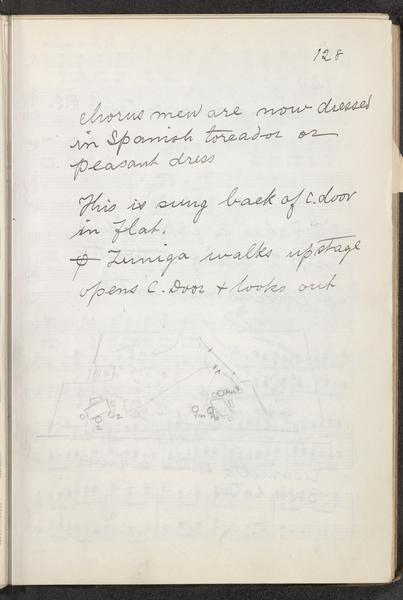 128
chorus men are now dressed
in Spanish toreador or
peasant dress
This is sung back of C. door
in flat.
φ Zuniga walks upstage
opens C. Door + looks out